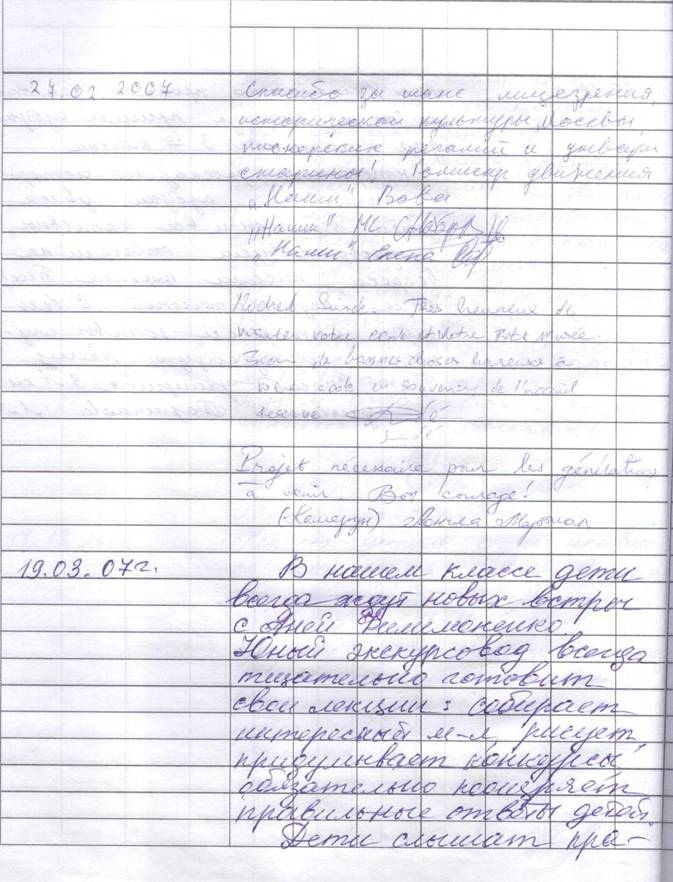 27.02.2007 Спасибо за шанс лицезрения
исторической культуры Москвы,
пионерских регалий и утвари
старины! Комиссар движения
"Наши" Вова
"Наши" МС
"Наши" Елена
Très heureux de
visiter votre école et votre petit musée.
de bonnes choses
école en souvenir de l'accueil
réservé
Projet nécessaire pour les générations
à venir. Bon courage!
(Камерун)
19.03.07г. В нашем классе дети
всегда ждут новых встреч
с Аней Филимоненко
Юный экскурсовод всегда
тщательно готовит
свои лекции: собирает
интересный м-л, рисует,
придумывает конкурсы,
обязательно поощряет
правильные ответы детей.
Дети слышат пра-